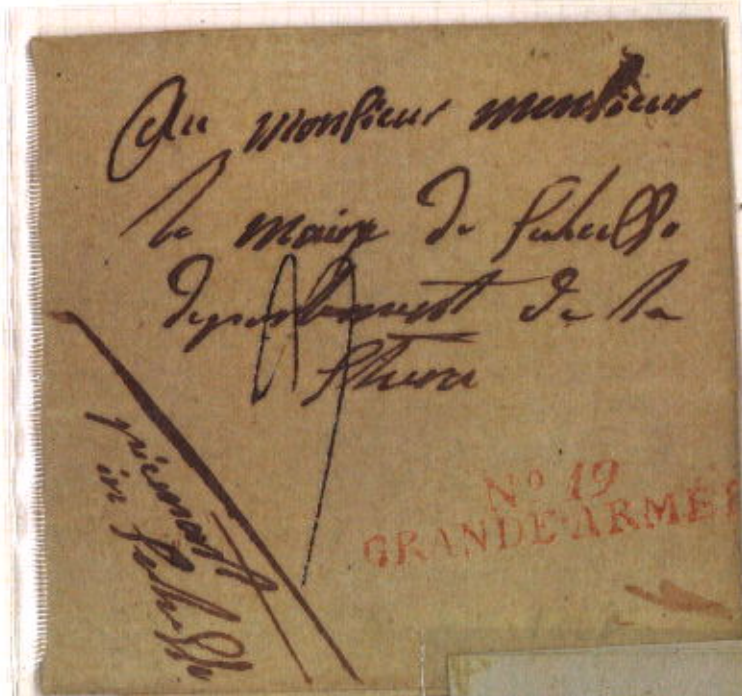 Au Monsieur monsieur
le maire de
departement de la
Stura
piemont
in
Nº 19
GRANDE-ARMÉE